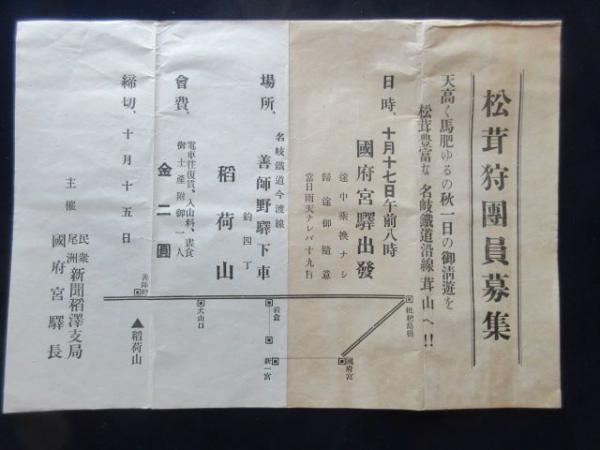 松茸狩團員募集
天高く馬肥ゆるの秋一日の御淸遊を
松茸豐富な名岐鐵道沿線茸山へ!!
日時、十月十七日午前八時
國府宮驛出發
途中乘換ナシ
歸途御隨意
當日雨天ナレバ十九日
場所、名岐鐵道今渡線
善師野驛下車
約四丁
稻荷山
會費、電車往復賃、入山料、晝食
御土產附御一人
金二圓
締切、十月十五日
主催
民衆
尾洲
新聞稻澤支局
國府宮驛長
枇杷島橋
國府宮
新一宮
岩倉
犬山口
善師野
▲稻荷山